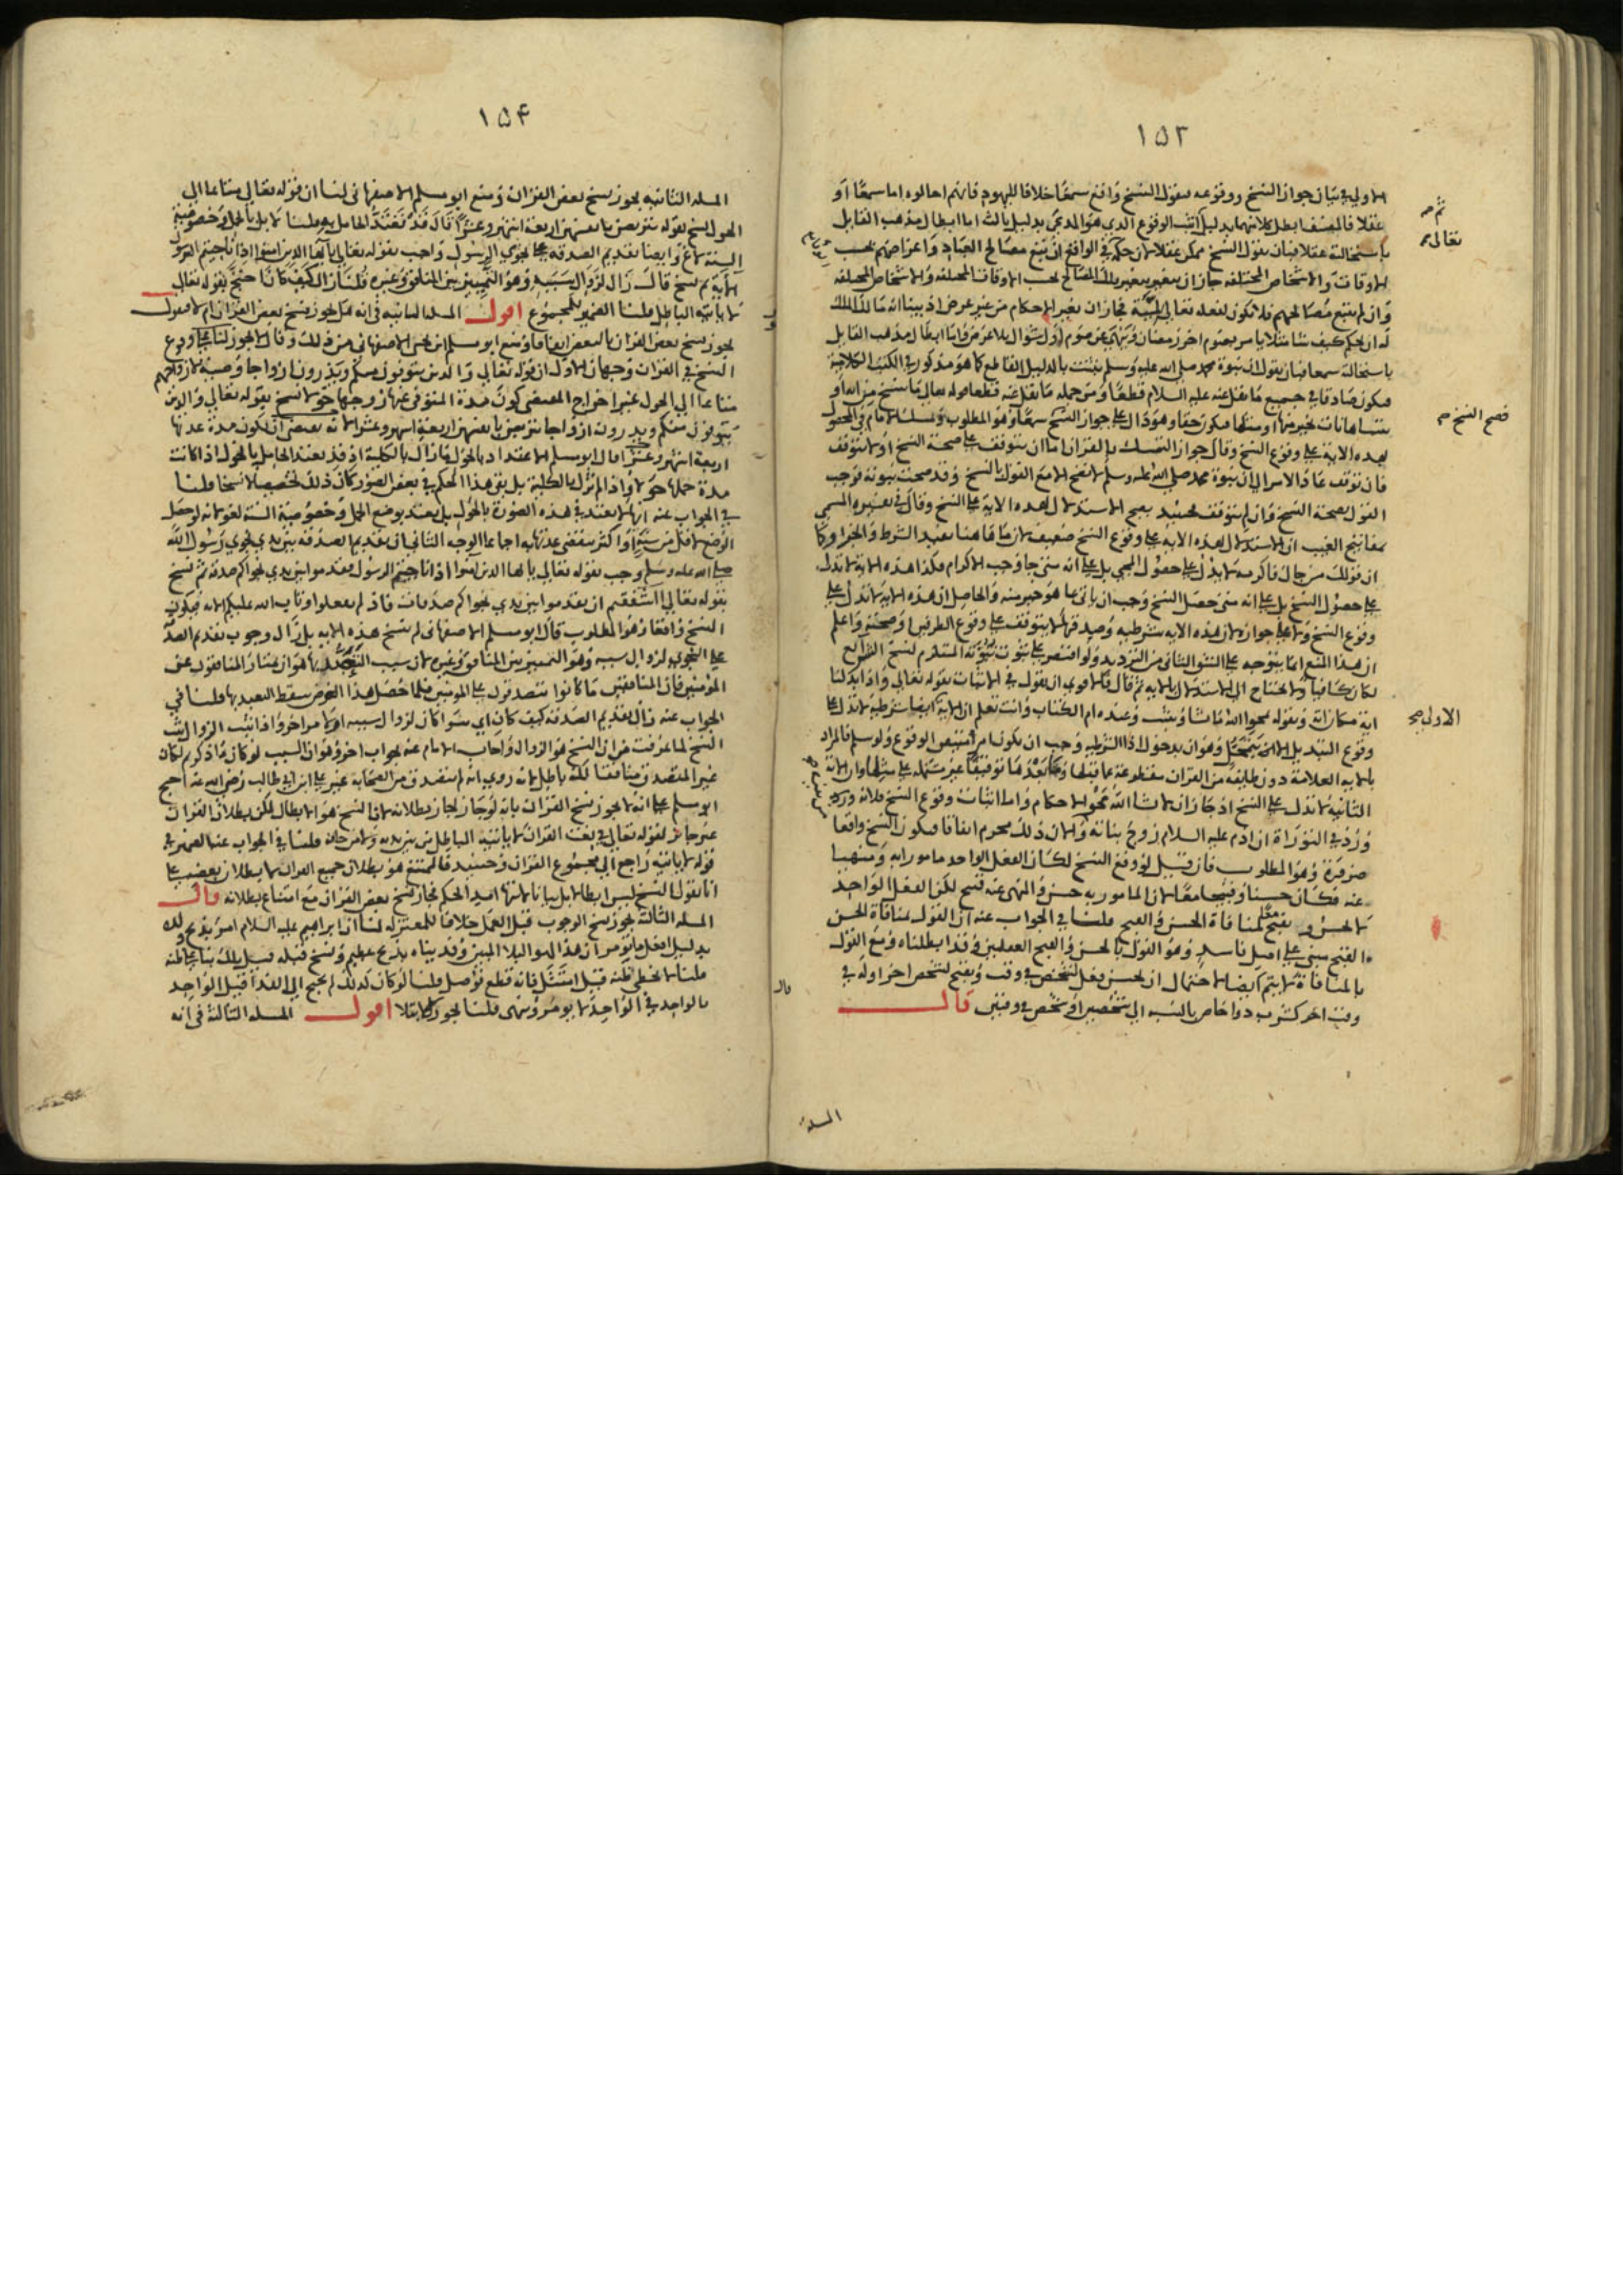 ١٥٣
الاولي في بيان جواز النسخ ووقوعه فنقول النسخ واقع سمعا خلافا لليهود فانهم احالوه اما سمعا او
عقلا فالمصنف ابطل كلامهما بدليل اثبت الوقوع الذي هو المدعي بدليل ثالث اما ابطال مذهب القايل
باستحالته عقلا فبان نقول النسخ ممكن عقلا لان حكمه في الواقع ان يتبع مصالح العباد واغراضهم بحسب
الاوقات والاشخاص المختلفه جاز ان يتغير بتغير تلك المصالح بحسب الاوقات المختلفه والاشخاص المختلفه
وان لم يتبع مصالحهم فلا تكون لفعله تعالي فجاز ان يغير الاحكام من غير غرض اذ بينا انه مالك الملك
له ان يحكم كيف شا مثلا يامر بصوم اخر رمضان وينهي عن صوم اول شوال بلا غرض واما ابطال مذهب القايل
باستحالته سمعا فبان نقول ان نبوة محمد صلي الله عليه وسلم ثبتت بالدليل القاطع كما هو مذكور في الكتب الكلامية
فيكون صادقا في جميع ما نقل عنه عليه السلام قطعا ومن جمله ما نقل عنه قطعا قوله تعالي ما ننسخ من اية او
ننساها نات بخير منها او مثلها فيكون حقا وهو دال علي جواز النسخ سمعا وهو المطلوب ومسلك الامام في المحصول
بهذه الاية علي وقوع النسخ وقال جواز التمسك بالقران اما ان يتوقف علي صحة النسخ او لا يتوقف
فان توقف عاد الامر الي ان نبوة محمد صلي الله عليه وسلم لا تصح الا مع القول بالنسخ وقد صحت نبوته فوجب
القول بصحة النسخ وان لم يتوقف فحينئذ يصح الاستدلال بهذه الاية علي النسخ وقال في تفسيره المسمي
بمفاتيح الغيب ان الاستدلال بهذه الاية علي وقوع النسخ ضعيف لان ما هاهنا تفيد الشرط والجزا وكما
ان قولك من جاك فاكرمه لا يدل علي حصول المجي بل علي انه متي جا وجب الاكرام فكذا هذه الاية لا تدل
علي حصول النسخ بل علي انه متي حصل النسخ وجب ان ياتي بما هو خير منه والحاصل ان هذه الاية لا تدل علي
وقوع النسخ ولا علي جوازه لان هذه الاية شرطية وصدقها لا يتوقف علي وقوع الطرفين وصحتهم واعلم
ان هذا المنع انما يتوجه علي الشق الثاني من الترديد ولو اقتصر علي ثبوت نبوته المستلزم لنسخ الشرايع
لكان كافيا ولا يحتاج الي الاستدلال بالاية ثم قال فالاقوي ان نقول في الاثبات بقوله تعالي واذا بدلنا
اية مكان اية وبقوله يمحوا الله ما يشا ويثبت وعنده ام الكتاب وانت تعلم ان الاية ايضا شرطية لا تدل علي
وقوع التبديل وهو ان بدخول اذا الشرطيه وجب ان يكون امر الوقوع ولو سلم فالمراد
بالاية العلامة دون طايفة من القران مقطوعة عما قبلها وما بعدها توقيفا غير مشتمله علي مثلها وان الاية
الثانية لا تدل علي النسخ اذ جاز ان لا يشا الله محو الاحكام واما اثبات وقوع النسخ فلانه ورد
ورد في التوراة ان ادم عليه السلام زوج بناته والان ذلك محرم اتفاقا فيكون النسخ واقعا
ضرورة وهو المطلوب فان قيل لو وقع النسخ لكان الفعل الواحد مامورا به ومنهيا
عنه فكان حسنا وقبيحا معا لان المامور به حسن والمنهي عنه قبيح لكن الفعل الواحد
لا يحسن ويقبح لمنافاة الحسن والقبح قلنا في الجواب عنه ان القول بمنافاة الحسن
والقبح مبني علي اصل فاسد وهو القول بالحسن والقبح العقليين وقد ابطلناه ومع القول
بالمنافاة لا يتم ايضا لاحتمال ان يحسن فعل لشخص في وقت ويقبح لشخص اخر او له في
وقت اخر كشرب دوا خاص بالنسبه الي شخصين او شخص في وقتين قال
المسله
ثم
تعالي
فصح النسخ
الاولي
١٥٤
المسله الثانيه يجوز نسخ بعض القران ومنع ابو مسلم الاصفهاني لنا ان قوله تعالي متاعا الي
الحول نسخ بقوله يتربصن بانفسهن اربعة اشهر وعشرا قال قد تعتد الحامل به قلنا لا بل بالحمل وخصوصية
السنة لاغ وايضا تقديم الصدقه علي نجوي الرسول واجب بقوله تعالي يا ايها الذين امنوا اذا ناجيتم الرسول
الاية ثم نسخ قال زال لزوال سببه وهو التمييز بين المنافق وغيره قلنا زال كيف كان احتج بقوله تعالي
لا ياتيه الباطل قلنا الضمير للمجموع اقول المسله الثانيه في انه هل يجوز نسخ بعض القران ام لا فنقول
يجوز نسخ بعض القران بالبعض اتفاقا ومنع ابو مسلم ابن بحر الاصفهاني من ذلك وقال لا يجوز لنا علي وقوع
النسخ في القران وجهان الاول ان قوله تعالي والذين يتوفون منكم ويذرون ازواجا وصية لازواجهم
متاعا الي الحول غير اخراج المقتضي كون مدة المتوفي عنها زوجها حولا نسخ بقوله تعالي والذين
يتوفون منكم ويذرون ازواجا يتربصن بانفسهن اربعة اشهر وعشرا لانه يقتضي ان تكون مدة عدتها
اربعة اشهر وعشرا قال ابو مسلم الاعتداد بالحول ما زال بالكلية اذ قد تعتد الحامل بالحول اذا كانت
مدة حملها حولا واذا لم تزل بالكلية بل بقي هذا الحكم في بعض الصور كان ذلك تخصيصا لا نسخا قلنا
في الجواب عنه انها لا تعتد في هذه الصورة بالحول بل تعتد بوضع الحمل وخصوصية السنة لغو لانه لو حصل
الوضع لاقل من سنة او اكثر تنقضي عدتها به اجماعا الوجه الثاني ان تقديم الصدقه بين يدي نجوي رسول الله
صلي الله عليه وسلم وجب بقوله تعالي يا ايها الذين امنوا اذا ناجيتم الرسول فقدموا بين يدي نجواكم صدقة ثم نسخ
بقوله تعالي ااشفقتم ان تقدموا بين يدي نجواكم صدقات فاذ لم تفعلوا وتاب الله عليكم الاية فيكون
النسخ واقعا وهو المطلوب قال ابو مسلم الاصفهاني لم تنسخ هذه الاية بل زال وجوب تقديم الصدقة
علي النجوي لزوال سببه وهو التمييز بين المنافق وغيره لان سبب التعبد بها هو ان يمتاز المنافقون عن
المؤمنين فان المنافقين ما كانوا يتصدقون علي المومنين فلما حصل هذا الغرض سقط التعبد بها قلنا في
الجواب عنه زال تقديم الصدقة كيف كان اي سوا كان لزوال سببه او لامر اخر واذا ثبت الزوال ثبت
النسخ لما عرفت من ان النسخ هو الزوال واجاب الامام عنه بجواب اخر وهو ان السبب لو كان ما ذكرتم لكان
غير المتصدق منافقا لكنه باطل لانه روي انه لم يتصدق من الصحابة غير علي ابن ابي طالب رضي الله عنه احتج
ابو مسلم علي انه لا يجوز نسخ القران بانه لو جاز لجاز بطلانه لان النسخ هو الابطال لكن بطلان القران
غير جائز لقوله تعالي في نعت القران لا ياتيه الباطل من بين يديه ولا من خلفه قلنا في الجواب عنه الضمير في
قوله لا ياتيه راجع الي مجموع القران وحينئذ فالممتنع هو بطلان جميع القران لا بطلان بعضه علي
انا نقول النسخ ليس ابطالا بل بيانا لانتها امد الحكم فجاز نسخ بعض القران مع امتناع بطلانه قال
المسله الثالثة يجوز نسخ الوجوب قبل العمل خلافا للمعتزله لنا ان ابراهيم عليه السلام امر بذبح ولده
بدليل افعل ما تؤمر ان هذا لهو البلا المبين وفديناه بذبح عظيم ونسخ قبله قيل تلك بنا علي ظنه
قلنا لا يخطي ظنه قيل امتثل فانه قطع فوصل قلنا لو كان كذلك لم يحتج الي الفدا قيل الواحد
بالواحد في الواحد لا يومر وينهي قلنا يجوز للابتلا اقول المسله الثالثة في انه